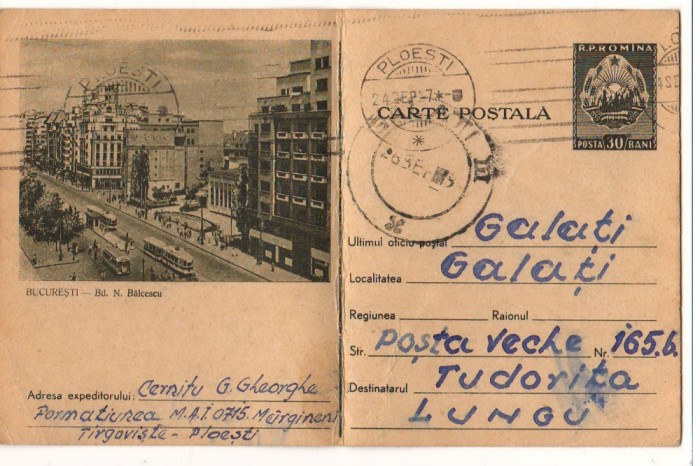 BUCUREȘTI — Bd. N. Bălcescu
Adresa expeditorului: Cernitu G. Gheorghe
Formațiunea M.A.I. 0715. Mărgineni
Tîrgoviște - Ploești
PLOEȘTI
PLOEȘTI
24SEP.-7*
CARTE POSTALĂ
R.P.ROMÎNA
POSTA 30 BANI
Ultimul oficiu poștal Galați
Localitatea Galați
Regiunea Raionul
Str. Poșta veche Nr. 165.b.
Destinatarul Tudorița
LUNGU